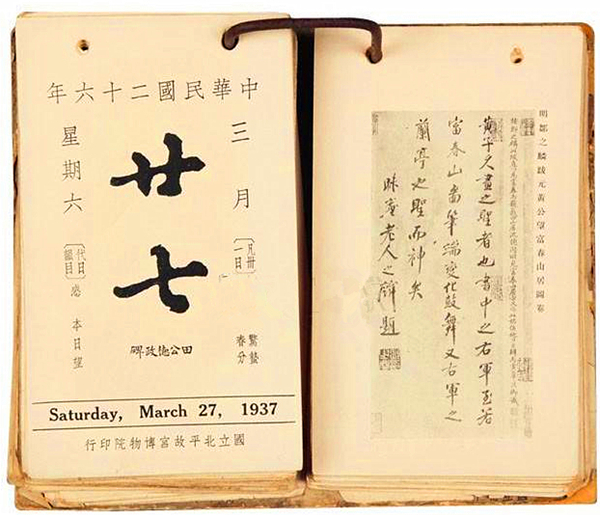 中華民國二十六年
三月
凡卅一日
廿七
星期六
代日韻目
感
本日望
驚蟄
春分
田公德政碑
Saturday, March 27, 1937
國立北平故宮博物院印行
明鄒之麟跋元黃公望富春山居圖卷
黃子久畫之聖者也書中之右軍至若
富春山啚筆端變化鼓舞又右軍之
蘭亭也聖而神矣
昧菴老人之麟題